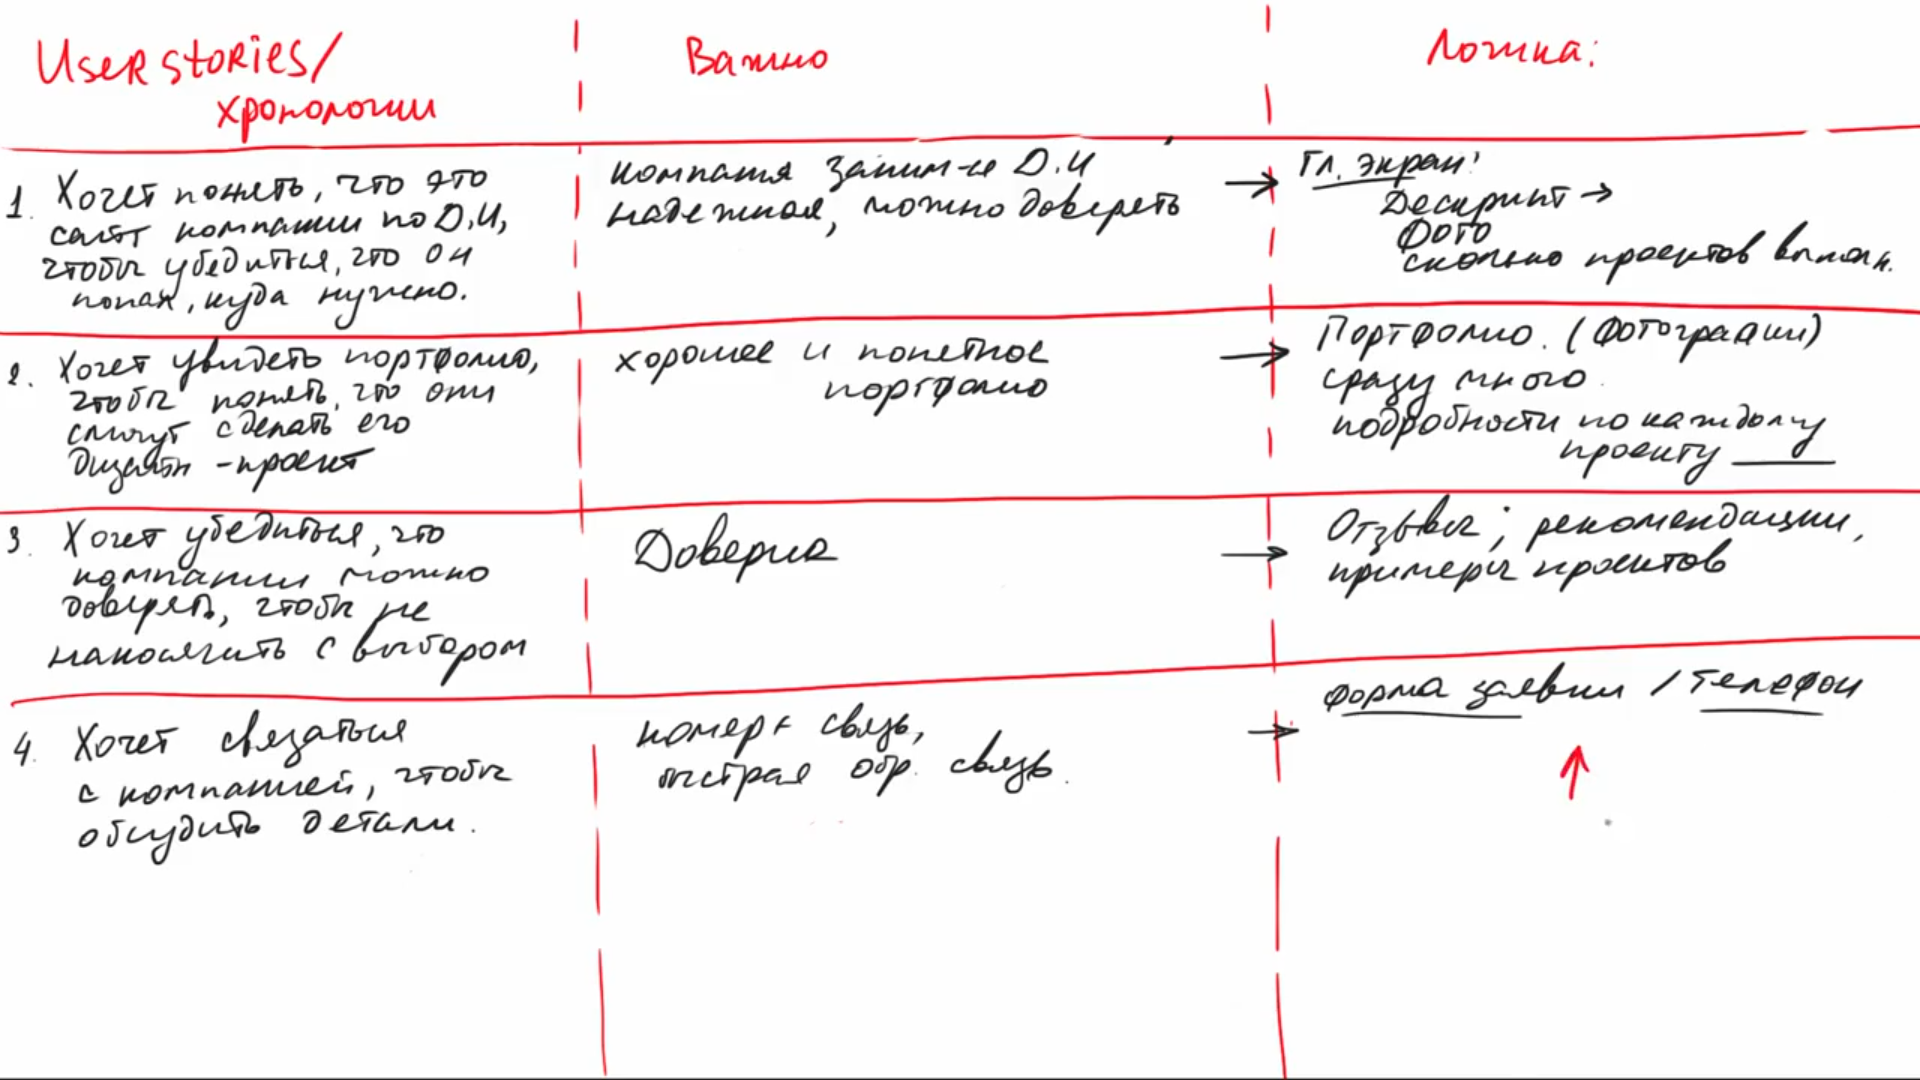 User stories/
хронологии
Важно
Логика:
1. Хочет понять, что это
сайт компании по Д.И,
чтобы убедиться, что он
попал, куда нужно.
компания заним-ся Д.И
надежная, можно доверять
Гл. экран:
Дескрипт →
Фото
сколько проектов выполн.
2. Хочет увидеть портфолио,
чтобы понять, что они
смогут сделать его
дизайн-проект
хорошее и понятное
портфолио
Портфолио. (фотографии)
сразу много.
подробности по каждому
проекту
3. Хочет убедиться, что
компании можно
доверять, чтобы не
накосячить с выбором
Доверие
Отзывы; рекомендации,
примеры проектов
4. Хочет связаться
с компанией, чтобы
обсудить детали.
номер + связь,
быстрая обр. связь.
форма заявки / Телефон